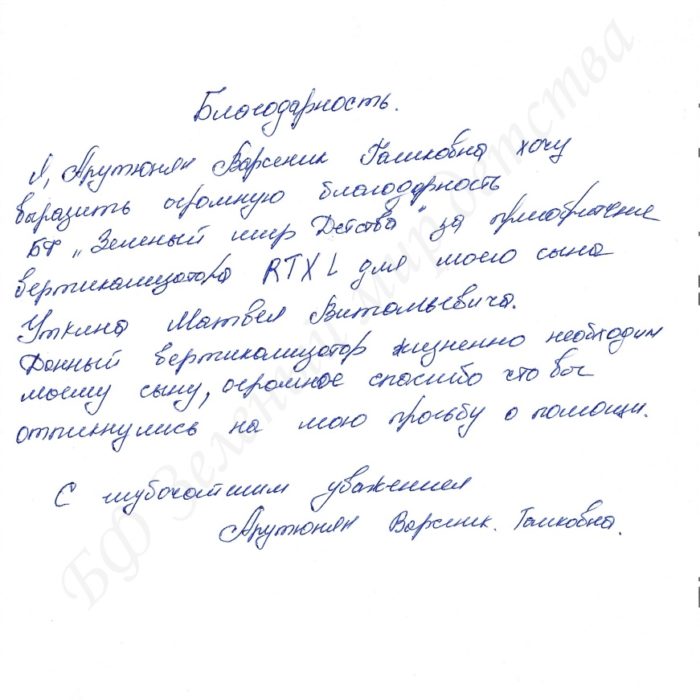 Благодарность.
Я, Арутюнян Варсеник Гаиковна хочу
выразить огромную благодарность
БФ "Зеленый мир Детства" за приобретение
вертикализатора RTX L для моего сына
Уткина Матвея Витальевича.
Данный вертикализатор жизненно необходим
моему сыну, огромное спасибо что вы
откликнулись на мою просьбу о помощи.
С глубочайшим уважением
Арутюнян Варсеник. Гаиковна.
БФ Зеленый мир детства